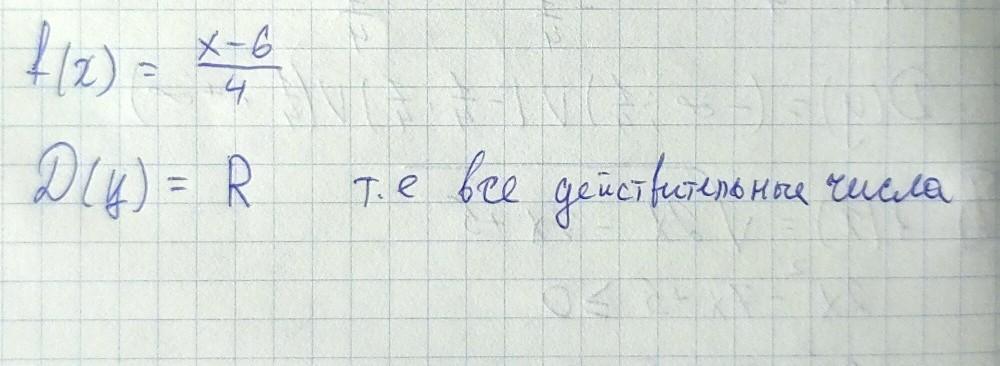 f(x) = (x-6)/4
D(y) = R т.е все действительные числа